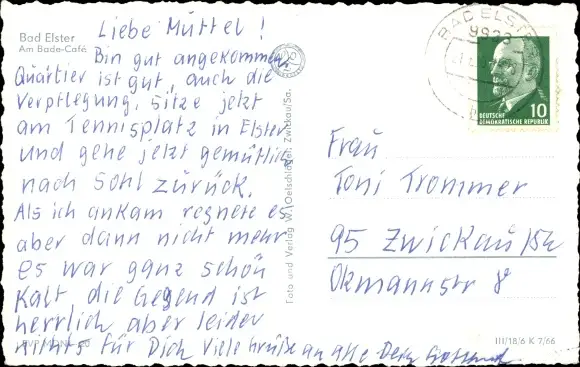 Liebe Muttel!
Bad Elster
Am Bade-Café
Bin gut angekommen
Quartier ist gut, auch die
Verpflegung, sitze jetzt
am Tennisplatz in Elster
und gehe jetzt gemütlich
nach Sohl zurück.
Als ich ankam regnete es
aber dann nicht mehr
es war ganz schön
kalt die Gegend ist
herrlich aber leider
nichts für Dich Viele Grüße an alle Dein
Foto und Verlag W. Oelschlägel, Zwickau/Sa.
BAD ELSTER
9933
10
DEUTSCHE
DEMOKRATISCHE REPUBLIK
Frau
Toni Trommer
95 Zwickau/Sa
Okmannstr 8
III/18/6 K 7/66